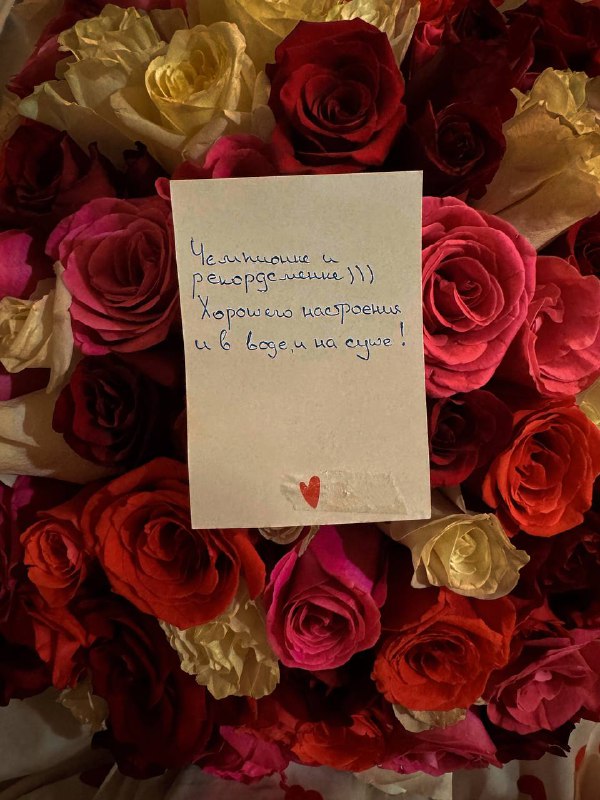 Чемпионке и
рекордсменке)))
Хорошего настроения
и в воде, и на суше!